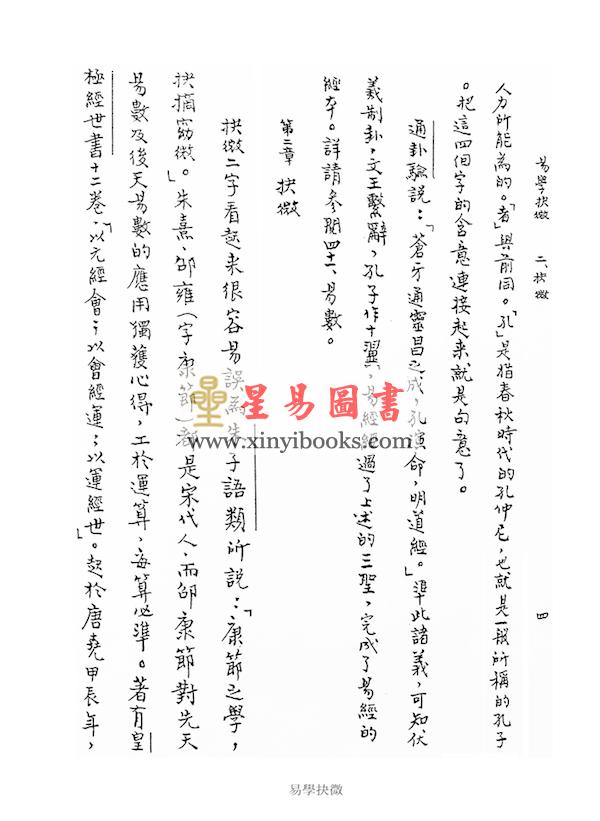 易學抉微 二、抉微 四
人力所能為的。「者」與前同。「孔」是指春秋時代的孔仲尼，也就是一般所稱的孔子
。把這四個字的含意連接起來就是句意了。
通卦驗說：「蒼牙通靈昌之成，孔演命，明道經。」準此諸義，可知伏
羲制卦，文王繫辭，孔子作十翼，易經經過了上述的三聖，完成了易經的
經本。詳請參閱四十二、易數。
第二章 抉微
抉微二字看起来很容易誤為朱子語類所說：「康節之學，
抉摘窈微」。朱熹、邵雍（字康節）都是宋代人，而邵康節對先天
易數及後天易數的應用獨獲心得，工於運算，每算必準。著有皇
極經世書十二卷，「以元經會；以會經運；以運經世」。起於唐堯甲辰年，
星易圖書
www.xinyibooks.com
易學抉微